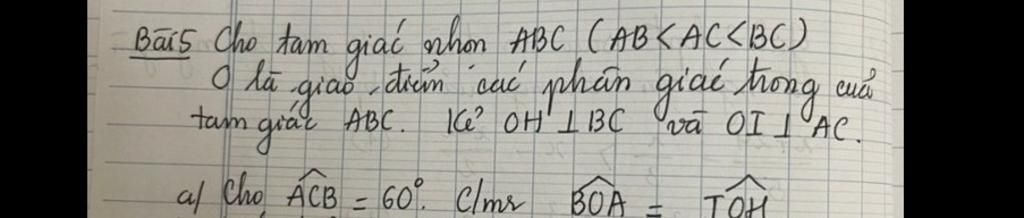 Bài 5 Cho tam giác nhọn ABC (AB < AC < BC)
O là giao điểm các phân giác trong của
tam giác ABC. Kẻ OH ⊥ BC và OI ⊥ AC.
a/ Cho \widehat{ACB} = 60°. C/mr \widehat{BOA} = \widehat{IOH}